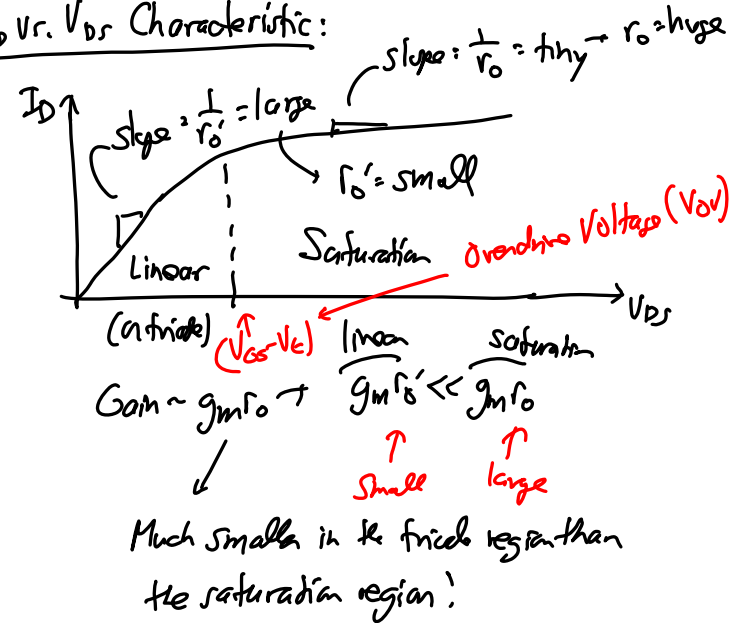 D vs. VDS Characteristic:
slope: 1/ro = tiny → ro = huge
ID
slope: 1/ro' = large
ro' = small
Overdrive Voltage (VOV)
Linear
Saturation
VDS
(or triode)
(VGS-Vt)
linear
saturation
Gain ~ gmro → gmro' << gmro
small
large
Much smaller in the triode region than
the saturation region!